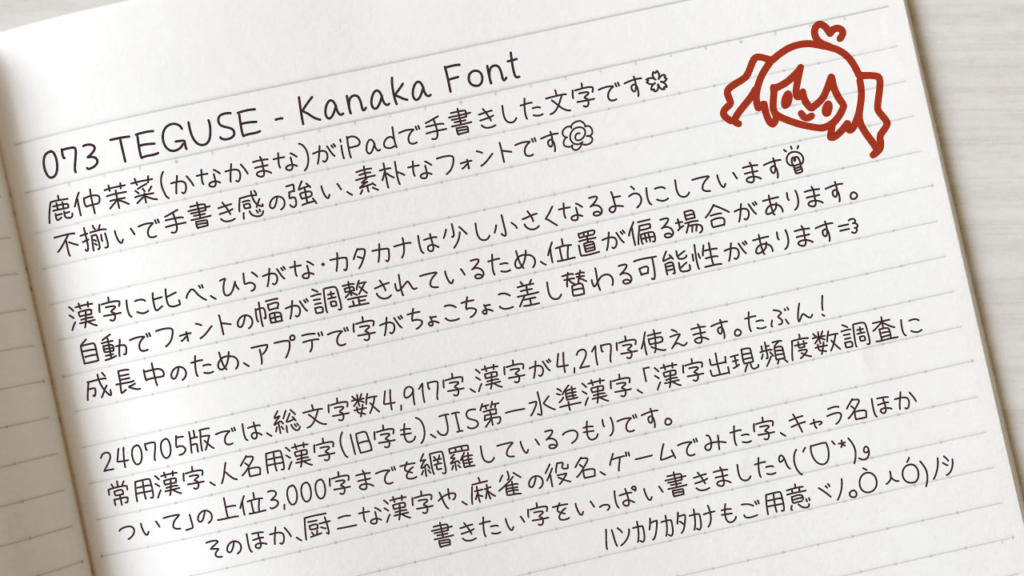 073 TEGUSE - Kanaka Font
鹿仲茉菜(かなかまな)がiPadで手書きした文字です
不揃いで手書き感の強い、素朴なフォントです
漢字に比べ、ひらがな・カタカナは少し小さくなるようにしています
自動でフォントの幅が調整されているため、位置が偏る場合があります。
成長中のため、アプデで字がちょこちょこ差し替わる可能性があります=3
240705版では、総文字数4,917字、漢字が4,217字使えます。たぶん！
常用漢字、人名用漢字(旧字も)、JIS第一水準漢字、「漢字出現頻度数調査に
ついて」の上位3,000字までを網羅しているつもりです。
そのほか、厨二な漢字や、麻雀の役名、ゲームでみた字、キャラ名ほか
書きたい字をいっぱい書きました٩(ˊᗜˋ*)و
ﾊﾝｶｸｶﾀｶﾅもご用意ヾﾉ｡ÒㅅÓ)ﾉｼ